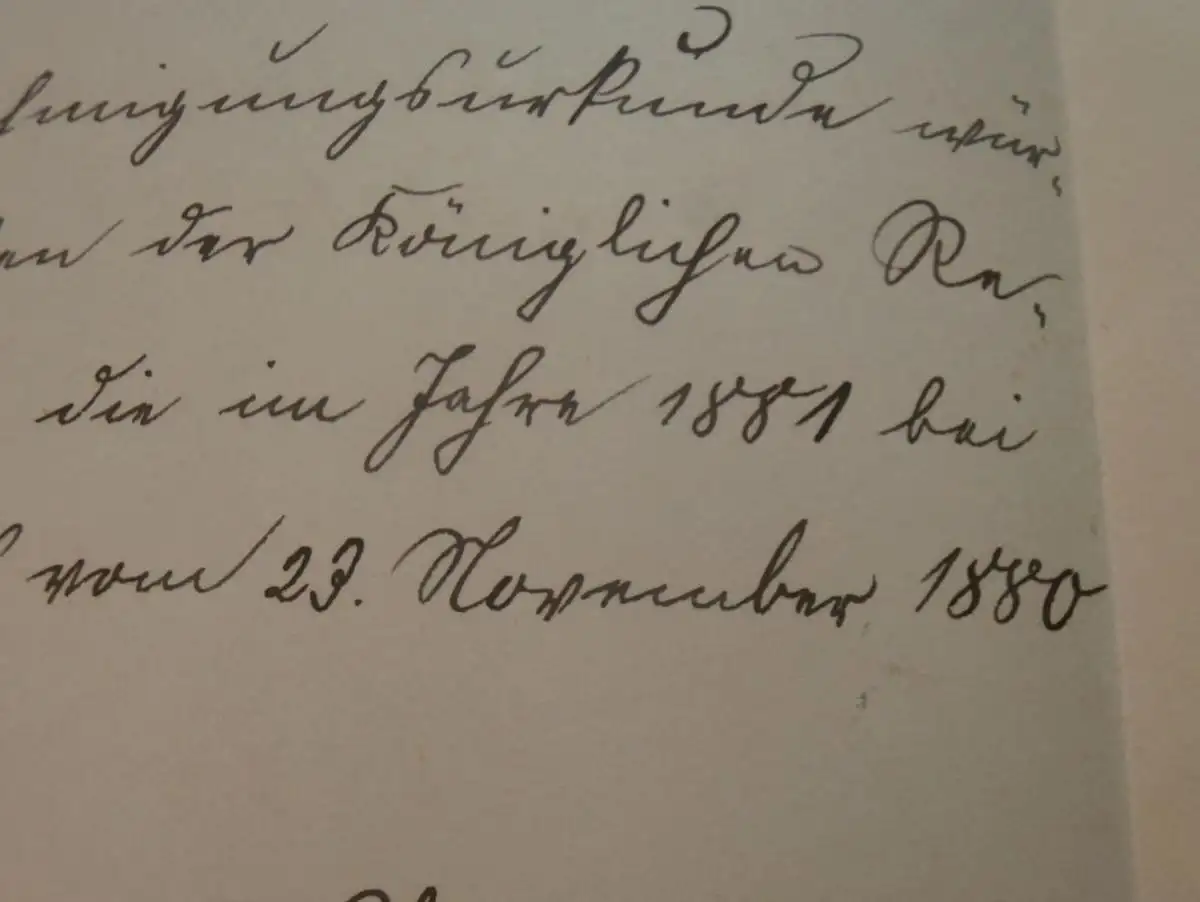 hmigungsurkunde wür-
en der Königlichen Re-
die im Jahre 1881 bei
vom 23. November 1880